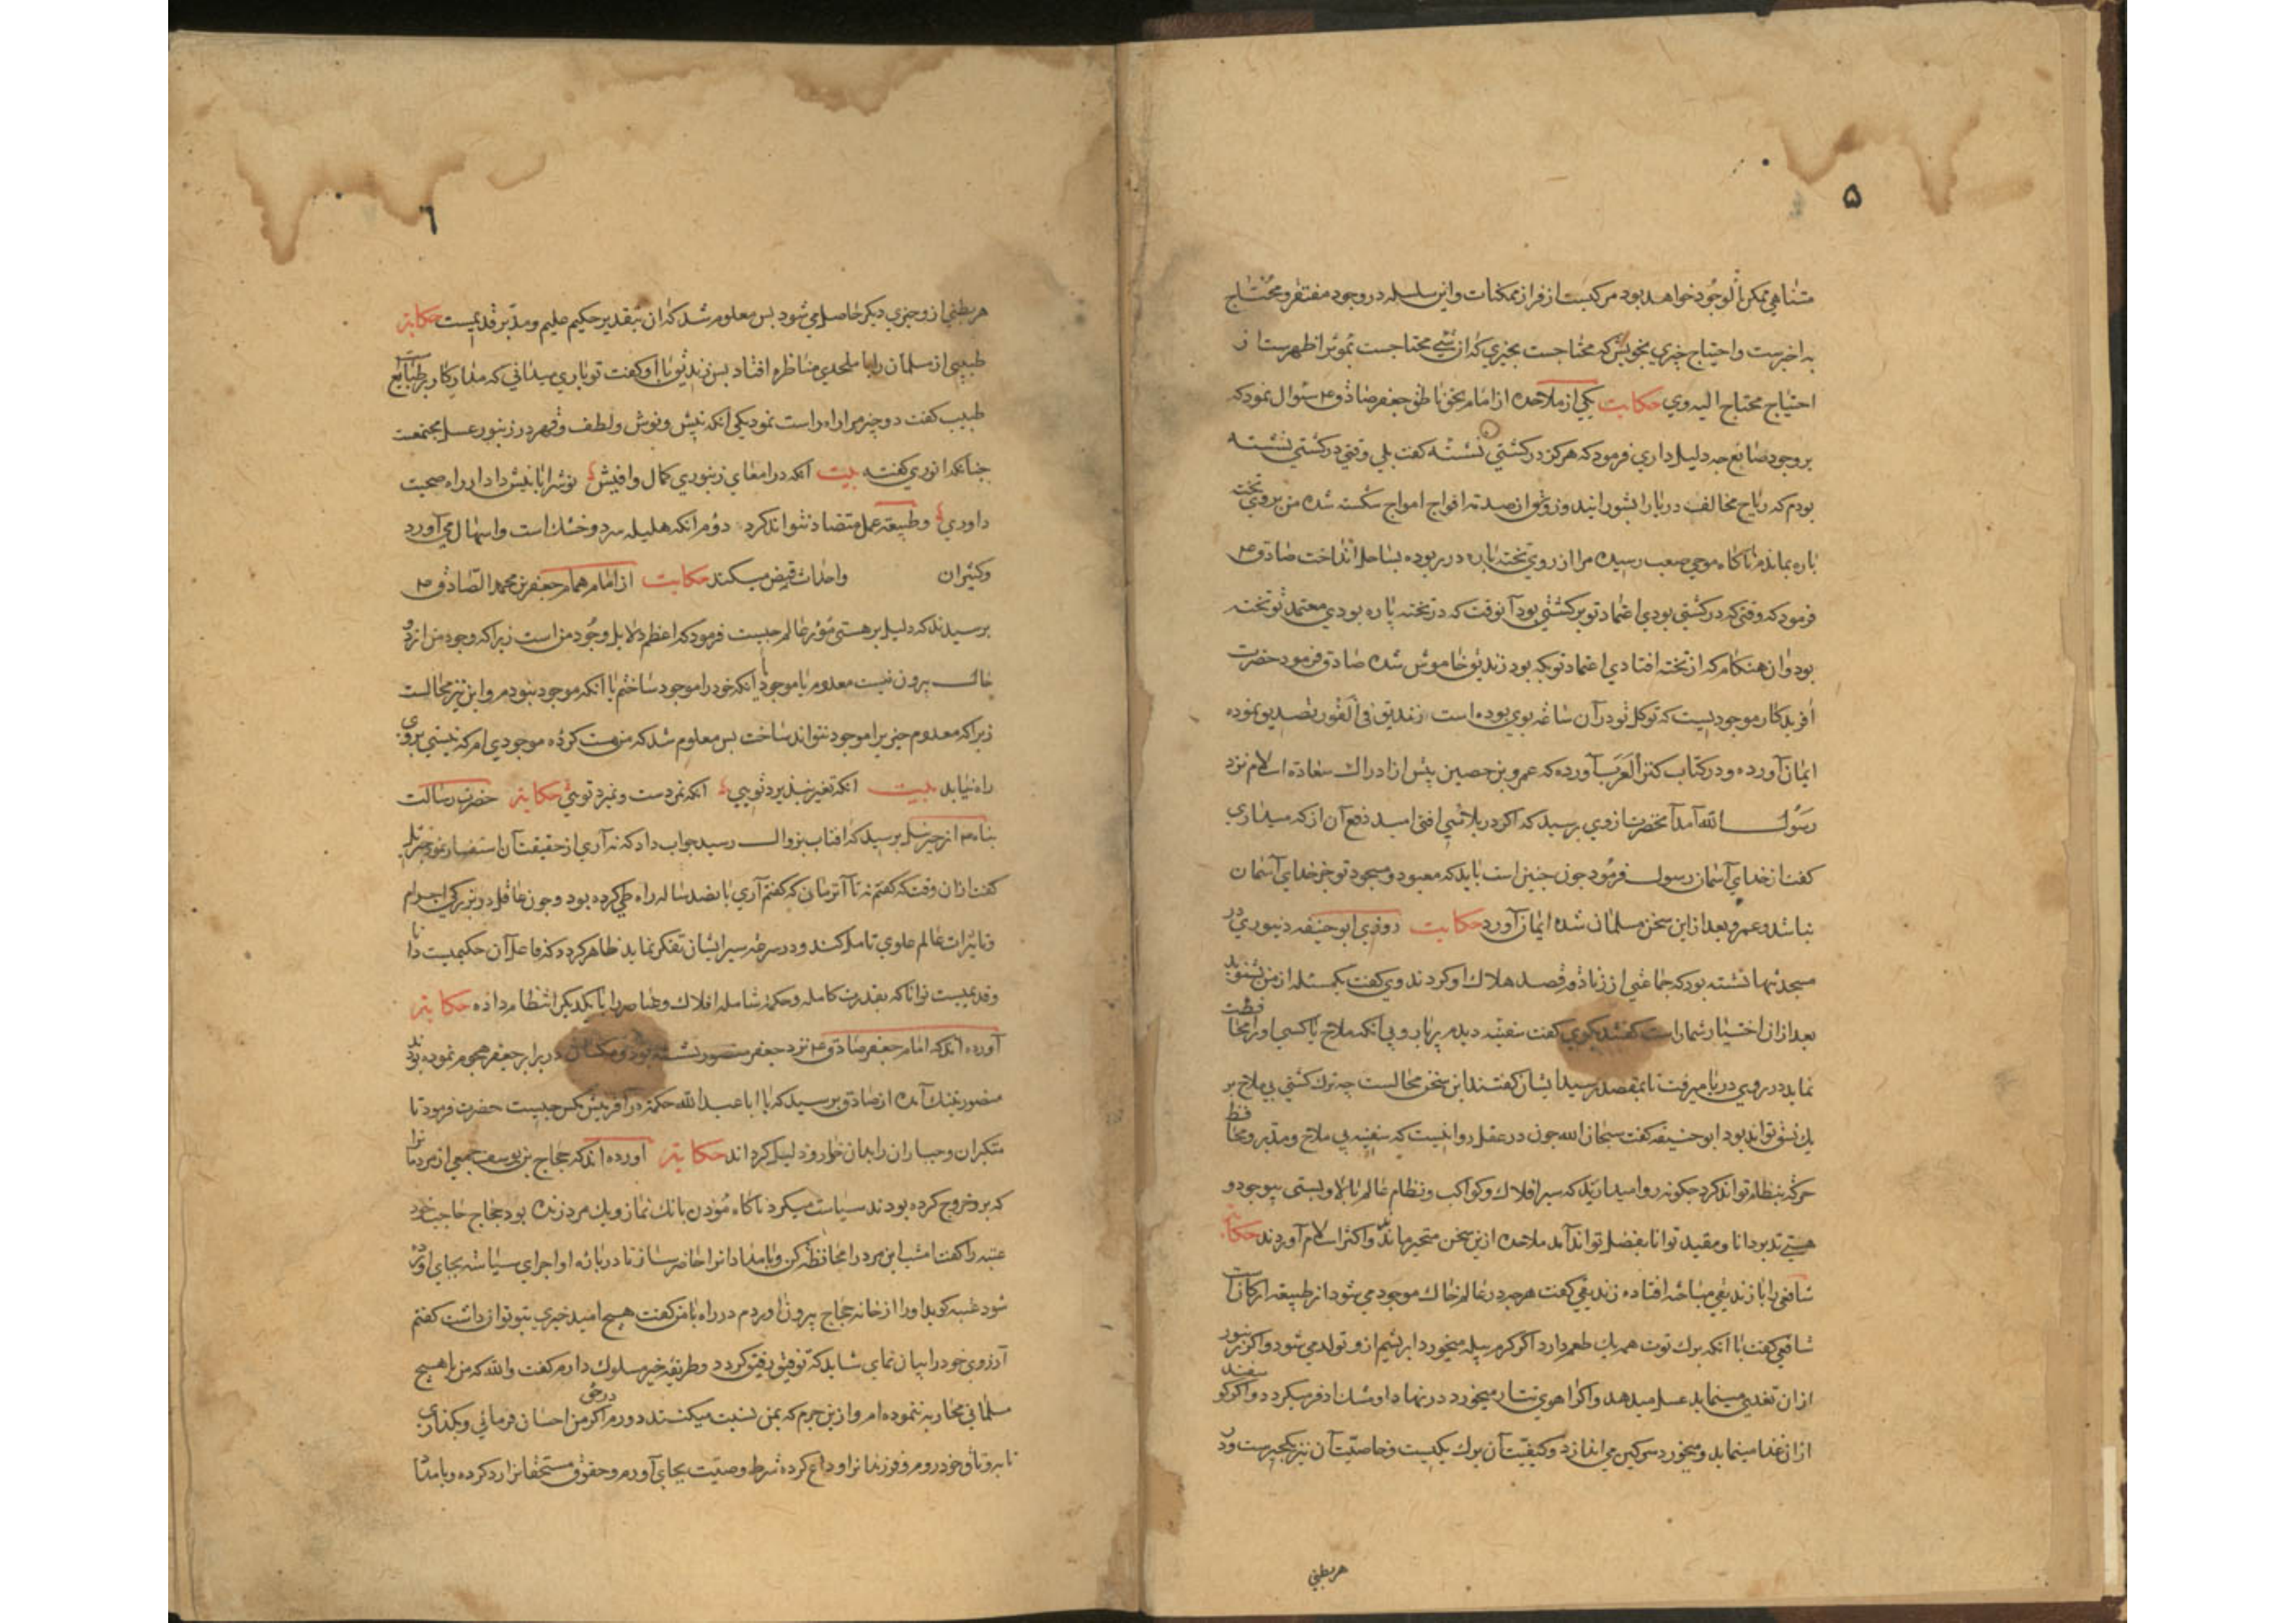 ۵
متناهي ممكن الوجود خواهد بود مركبست از افراد ممكنات و اين سلسله در وجود مفتقر و محتاج
به اخرست و احتياج چيزي بخويش كه محتاجست بچيزي كه ان شي محتاجست بمؤثر اظهرست از
احتياج محتاج اليه وي حكايت يكي از ملاحده از امام بحق ناطق جعفر صادق ع م سئوال نمود كه
بر وجود صانع چه دليل داري فرمود كه هرگز در كشتي نشسته گفت بلي وقتي در كشتي نشسته
بودم كه رياح مخالف دريا را بشورانيد و زورق از صدمه افواج امواج شكسته شده من بروي تخته
پاره بماندم ناگاه موجي صعب رسيده مرا از روي تخته پاره در ربوده بساحل انداخت صادق ع م
فرمود كه وقتي كه در كشتي بودي اعتماد تو بر كشتي بود آنوقت كه در تخته پاره بودي معتمد تو تخته
بود و ان هنكام كه از تخته افتادي اعتماد تو بكه بود زنديق خاموش شده صادق فرمود حضرت
آفريدكار موجوديست كه توكل تو در آن ساعة بوي بوده است زنديق في الفور تصديق نموده
ايمان آورده و در كتاب كنز العرب آورده كه عمرو بن حصين پيش از ادراك سعادة اسلام نزد
رسول الله آمد آنحضرت از وي پرسيد كه اكر در بلائي افتي اميد دفع آن از كه ميداري
گفت از خداي آسمان رسول فرمود چون چنين است بايد كه معبود و مسجود تو جز خداي آسمان
نباشد و عمرو بعد از اين سخن مسلمان شده ايمان آورد حكايت روزي ابو حنيفه دينوري در
مسجد تنها نشسته بود كه جماعتي از زنادقه قصد هلاك او كردند وي گفت يكمسئله از من بشنويد
بعد از ان اختيار شماراست گفتند بگوي گفت سفينه ديدم پربار و بي آنكه ملاح يا كسي او را محافظت
نمايد در روي دريا ميرفت تا بمقصد رسيد ايشان گفتند اين سخن محالست چه ترك كشتي بي ملاح بر
يك نسق تواند بود ابو حنيفه گفت سبحان الله چون در عقل روا نيست كه سفينه بي ملاح و مدبر و محافظ
حركة بنظام تواند كرد چكونه روا ميداريد كه سير افلاك و كواكب و نظام عالم بالا و پستي بيوجود و
هستي تدبر دانا و مقيد توانا بفضل تواند آمد ملاحده ازين سخن متحير ماندند و اكثر اسلام آوردند حكاية
شافعي را با زنديقي مباحثه افتاده زنديقي گفت هرچه در عالم خاك موجود مي شود از طبيعة اركان است
شافعي گفت با آنكه برك توت همه يك طعم دارد اگر كرم پيله ميخورد ابريشم ازو تولد مي شود و اكر زنبور
از ان تغذي مينمايد عسل ميدهد و اگر آهوي تتار ميخورد در نهاد او مشك اذفر ميكردد و اكر گوسفند
از ان غذا مينمايد و ميخورد سركين مي اندازد و كيفيت آن برك يكيست و خاصيت آن نيز يكچيزست و در
هر بطني
٦
هر بطني ازو چيزي ديكر حاصل مي شود پس معلوم شد كه ان بتقدير حكيم عليم و مدبر قديمست حكاية
طبيبي از مسلمان را با ملحدي مناظره افتاد پس زنديق با او گفت تو باري ميداني كه مدار كار بر طبايع است
طبيب گفت دو چيز مرا راه راست نمود يكي انكه نيش و نوش و لطف و قهر در زنبور عسل مجتمعست
چنانكه انوري گفته بيت آنكه در امعاي زنبوري كمال وافيش نوش را با نيش داد از راه صحبت
داوري و طبيعة عمل متضاد نتواند كرد دوم انكه هليله سرد و خشك است و اسهال مي آورد
و كتيران واحداث قبض ميكند حكايت از امام همام جعفر بن محمد الصادق ع م
پرسيدند كه دليل بر هستي مؤثر عالم چيست فرمود كه اعظم دلايل وجود من است زيرا كه وجود من از دو
حال بيرون نيست معدوم يا موجود يا آنكه خود را موجود ساختم با آنكه موجود نبودم و اين نيز محالست
زيرا كه معدوم چيزيرا موجود نتواند ساخت پس معلوم شد كه من هست كرده موجودي ام كه نيستي بروي
راه نيابد بيت انكه تغير نپذيرد توئي انكه نمردست و نميرد توئي حكاية حضرت رسالت
پناه ع م از جبرئيل پرسيد كه افتاب بزوال رسيد جواب داد كه نه آري از حقيقت آن استفسار نمود جبرئيل
گفت از ان وقت كه گفتم نه تا آنزمان كه گفتم آري پانصد ساله راه طي كرده بود و چون عاقل در بزركي اجرام
و تاثيرات عالم علوي تامل كند و در سرعة سير ايشان تفكر نمايد ظاهر كردد كه فاعل آن حكيميست دانا
و قديميست توانا كه بقدرت كامله و حكمة شامله افلاك و عناصر را با يكديكر انتظام داده حكاية
آورده اند كه امام جعفر صادق ع م نزد جعفر منصور نشسته بود و مكسان در برابر جعفر هجوم نموده بودند
منصور بتنك آمده از صادق پرسيد كه يا ابا عبد الله حكمة در آفرينش مكس چيست حضرت فرمود تا
متكبران و جباران را بدان خوار و ذليل كرداند حكاية آورده اند كه حجاج بن يوسف جمعي از مردمانرا
كه برو خروج كرده بودند سياست ميكرد ناكاه مؤذن بانك نماز و يك مرد زنده بود حجاج حاجب خود
عنبه را گفت امشب اين مرد را محافظة كن و بامدادان او را حاضر ساز تا درباره او اجراي سياسة بجاي آورده
شود عنبه كويد او را از خانه حجاج بيرون آوردم در راه با من گفت هيچ اميد خيري بتو توان داشت گفتم
آرزوي خود را بيان نماي شايد كه توفيق رفيق كردد و طريقه خير مسلوك دارم گفت والله كه من با هيچ
مسلماني محاربه ننموده ام و ازين جرم كه بمن نسبت ميكنند دورم اكر در حق من احسان فرمائي و بكذاري
تا بروثاق خود روم و فرزندانرا وداع كرده شرط وصيت بجاي آورم و حقوق مستحقانرا رد كرده و بامداد